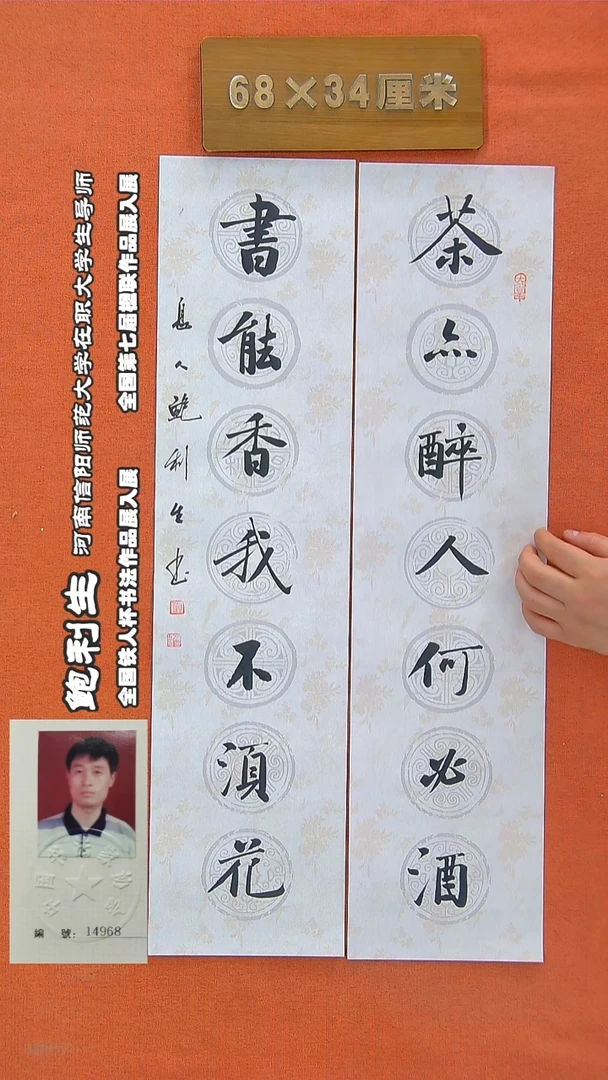 68×34厘米
茶亦醉人何必酒
書能香我不須花
息人鲍利生书
鲍利生 河南信阳师范大学在职大学生导师
全国铁人杯书法作品展入展 全国第七届楹联作品展入展
編 號：14968